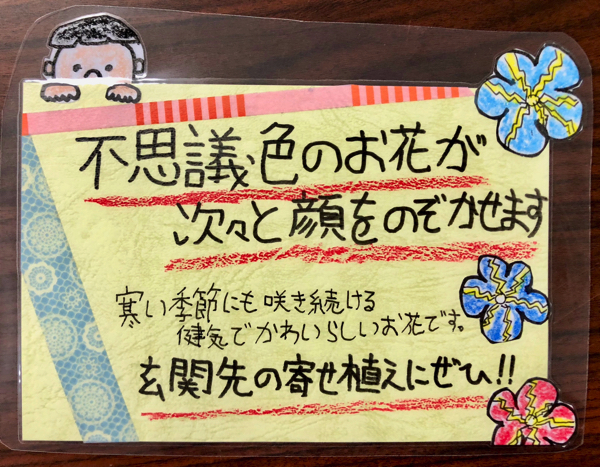 不思議色のお花が
次々と顔をのぞかせます
寒い季節にも咲き続ける
健気でかわいらしいお花です。
玄関先の寄せ植えにぜひ!!